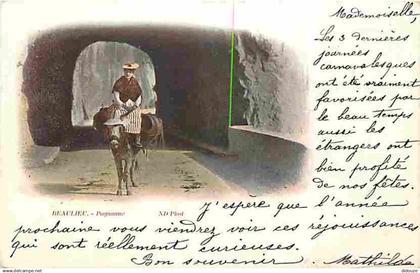 Mademoiselle
Les 3 dernières
journées
carnavalesques
ont été vraiment
favorisées par
le beau temps
aussi les
étrangers ont
bien profité
de nos fêtes
BEAULIEU. - Paysanne ND Phot
J'espère que l'année
prochaine vous viendrez voir ces réjouissances
qui sont réellement curieuses.
Bon souvenir Mathilde